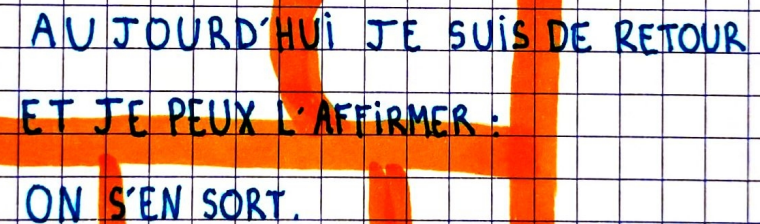 AUJOURD'HUi JE SUiS DE RETOUR
ET JE PEUX L'AFFiRMER :
ON S'EN SORT.